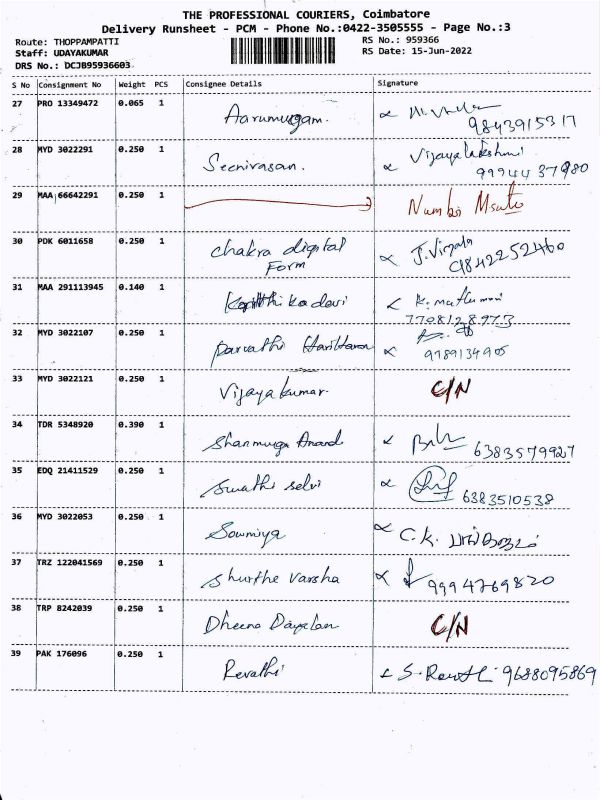 THE PROFESSIONAL COURIERS, Coimbatore
Delivery Runsheet - PCM - Phone No.:0422-3505555 - Page No.:3
Route: THOPPAMPATTI RS No.: 959366
Staff: UDAYAKUMAR RS Date: 15-Jun-2022
DRS No.: DCJB95936603
S No Consignment No Weight PCS Consignee Details Signature
27 PRO 13349472 0.065 1 Aarumurgam.
9843915317
28 MYD 3022291 0.250 1 Seenivasan. Vijayalakshmi
99944 37980
29 MAA 66642291 0.250 1 Numbir
30 PDK 6011658 0.250 1 chakra digital J.Vimala
Form 9842252460
31 MAA 291113945 0.140 1 Karthika devi K.
7708128973
32 MYD 3022107 0.250 1 Parvathi Hariharan
9789134905
33 MYD 3022121 0.250 1 Vijayakumar. C/N
34 TDR 5348920 0.390 1 Shanmuga Anand 6383579927
35 EDQ 21411529 0.250 1 Swathi selvi 6383510538
36 MYD 3022053 0.250 1 Soumiya C.K.
37 TRZ 122041569 0.250 1 Shurthe varsha 9994769820
38 TRP 8242039 0.250 1 Dheena Dayalan C/N
39 PAK 176096 0.250 1 Revathi S. 9688095869